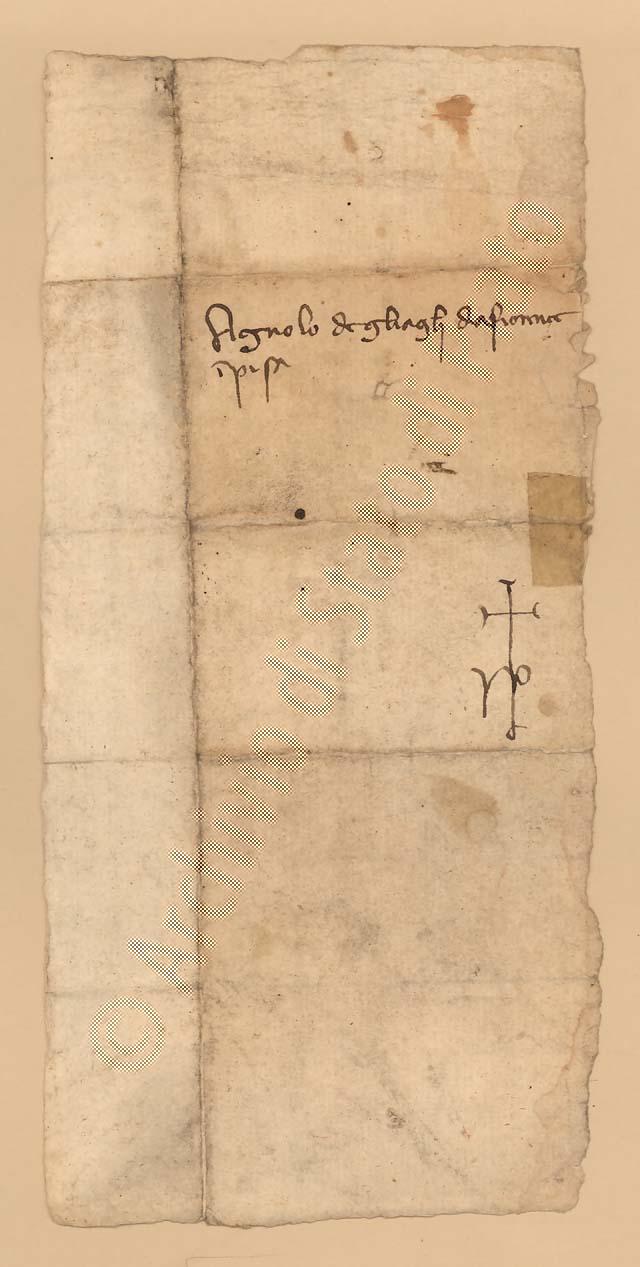 Agnolo degliagli dafirenze
īpisa
© Archivio di Stato di Prato